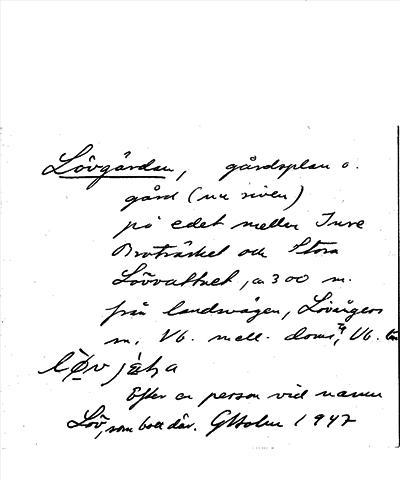 Lövgården, gårdsplan o.
gård (nu riven)
på edet mellan Inre
Broträsket och Stora
Lövvattnet, ca 300 m.
från landsvägen, Lövångers
sn, Vb. mell. doms., Vb. län
Efter en person vid namn
Löv, som bott där. GHolm 1947